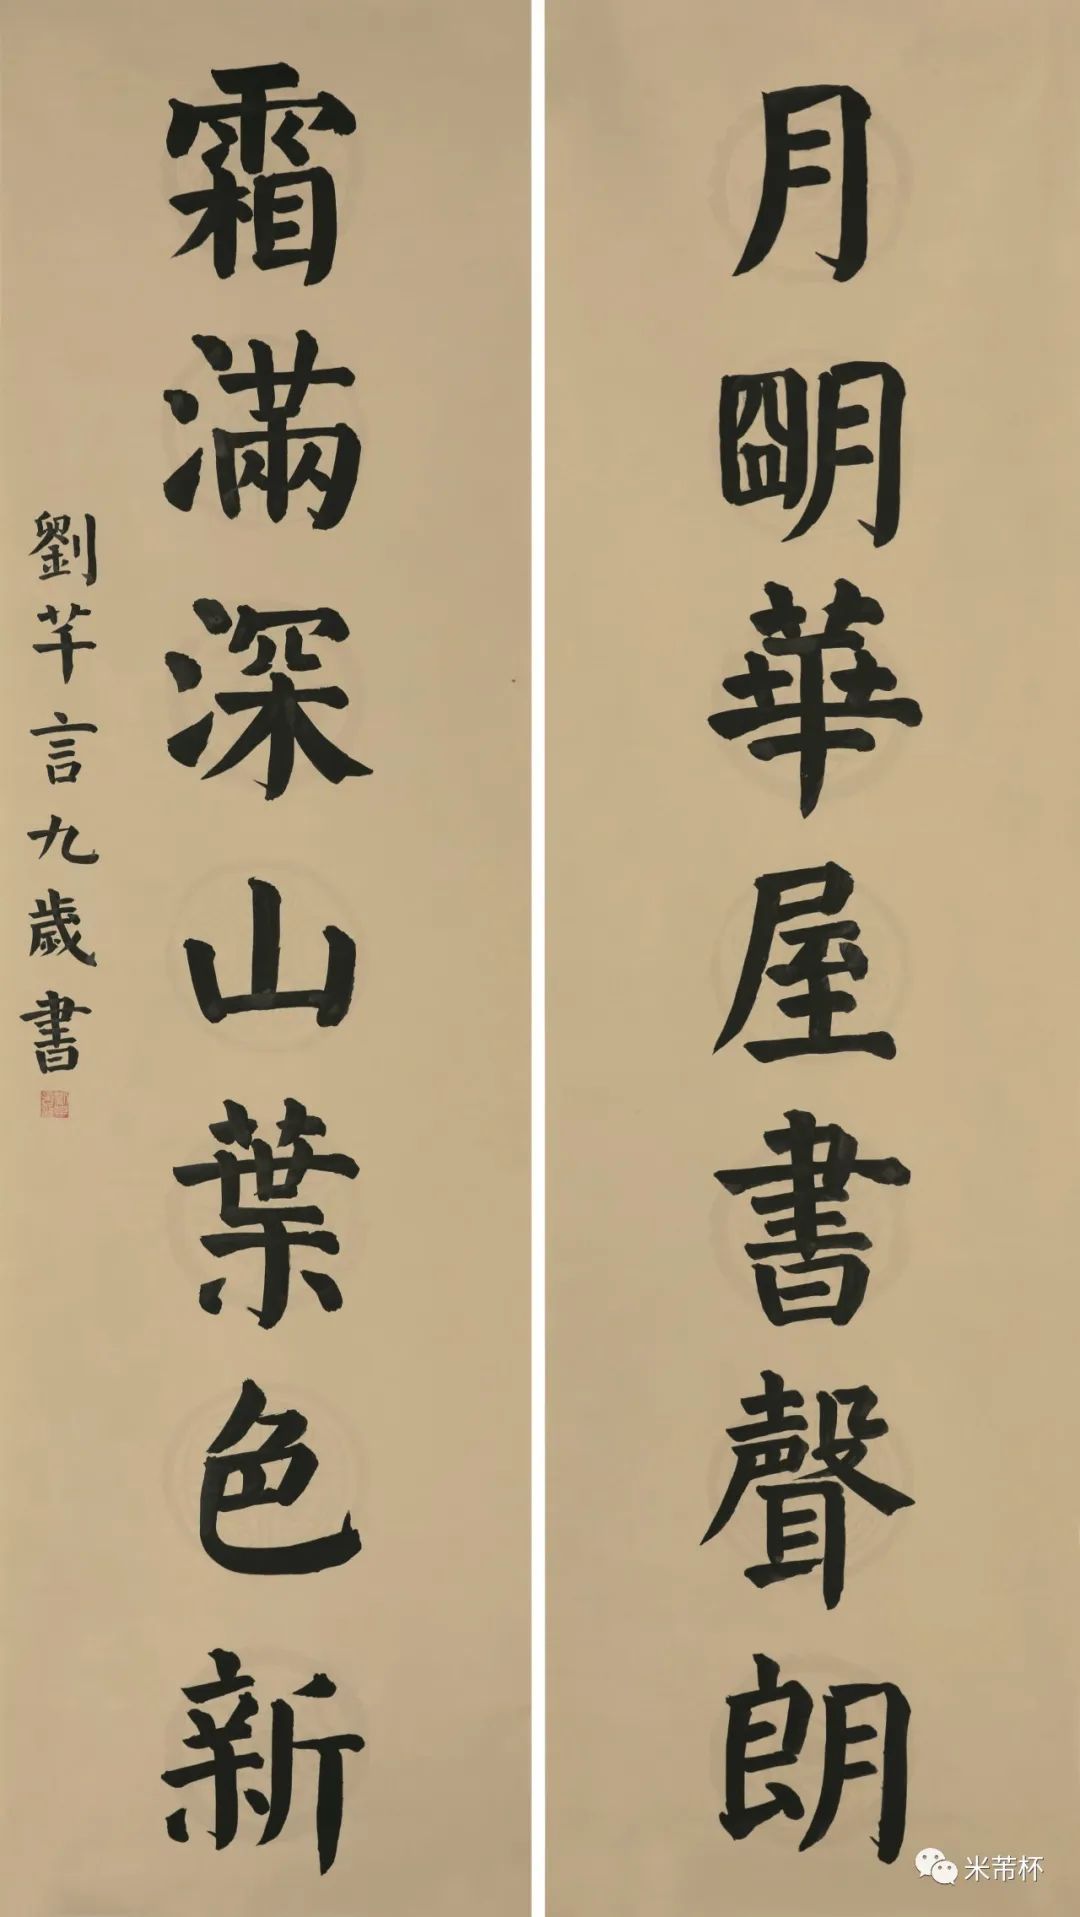 月朙華屋書聲朗
霜滿深山葉色新
劉芊言九歲書
米芾杯